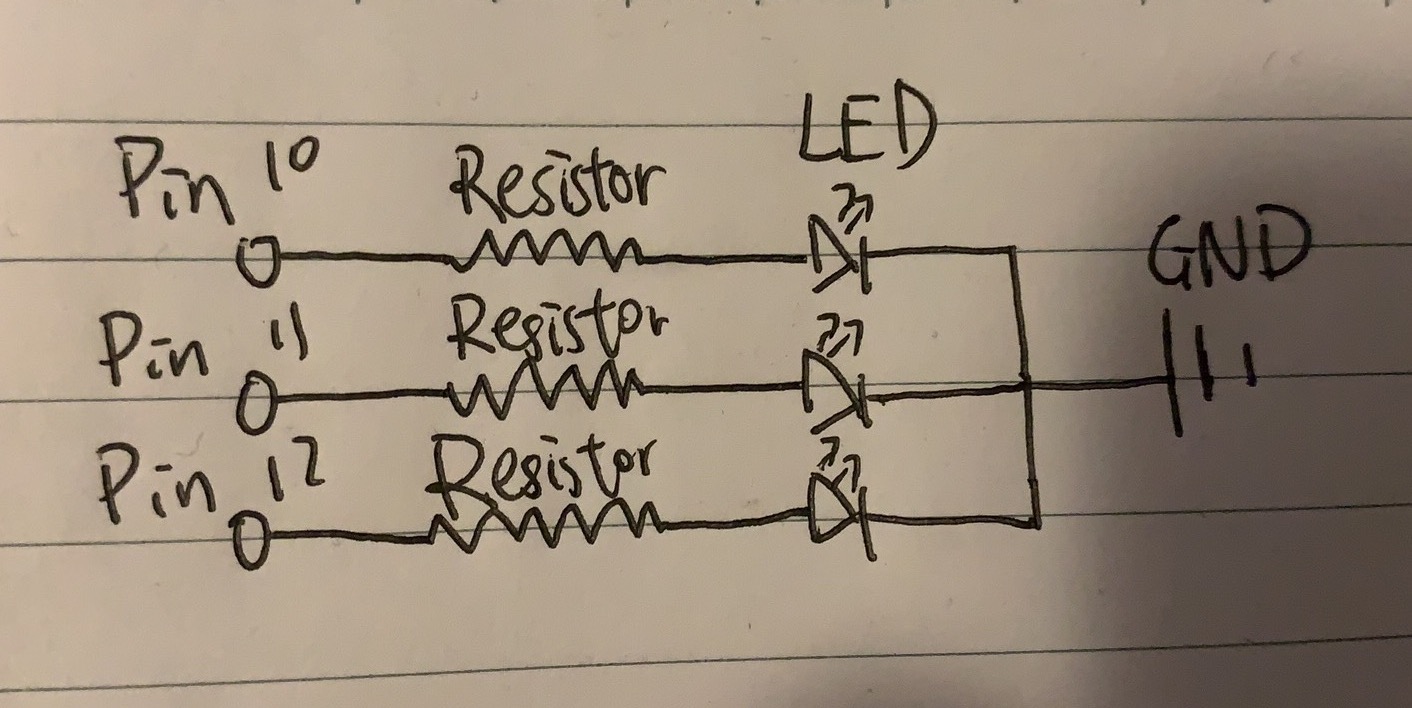 LED
Pin 10
Resistor
GND
Pin 11
Resistor
Pin 12
Resistor